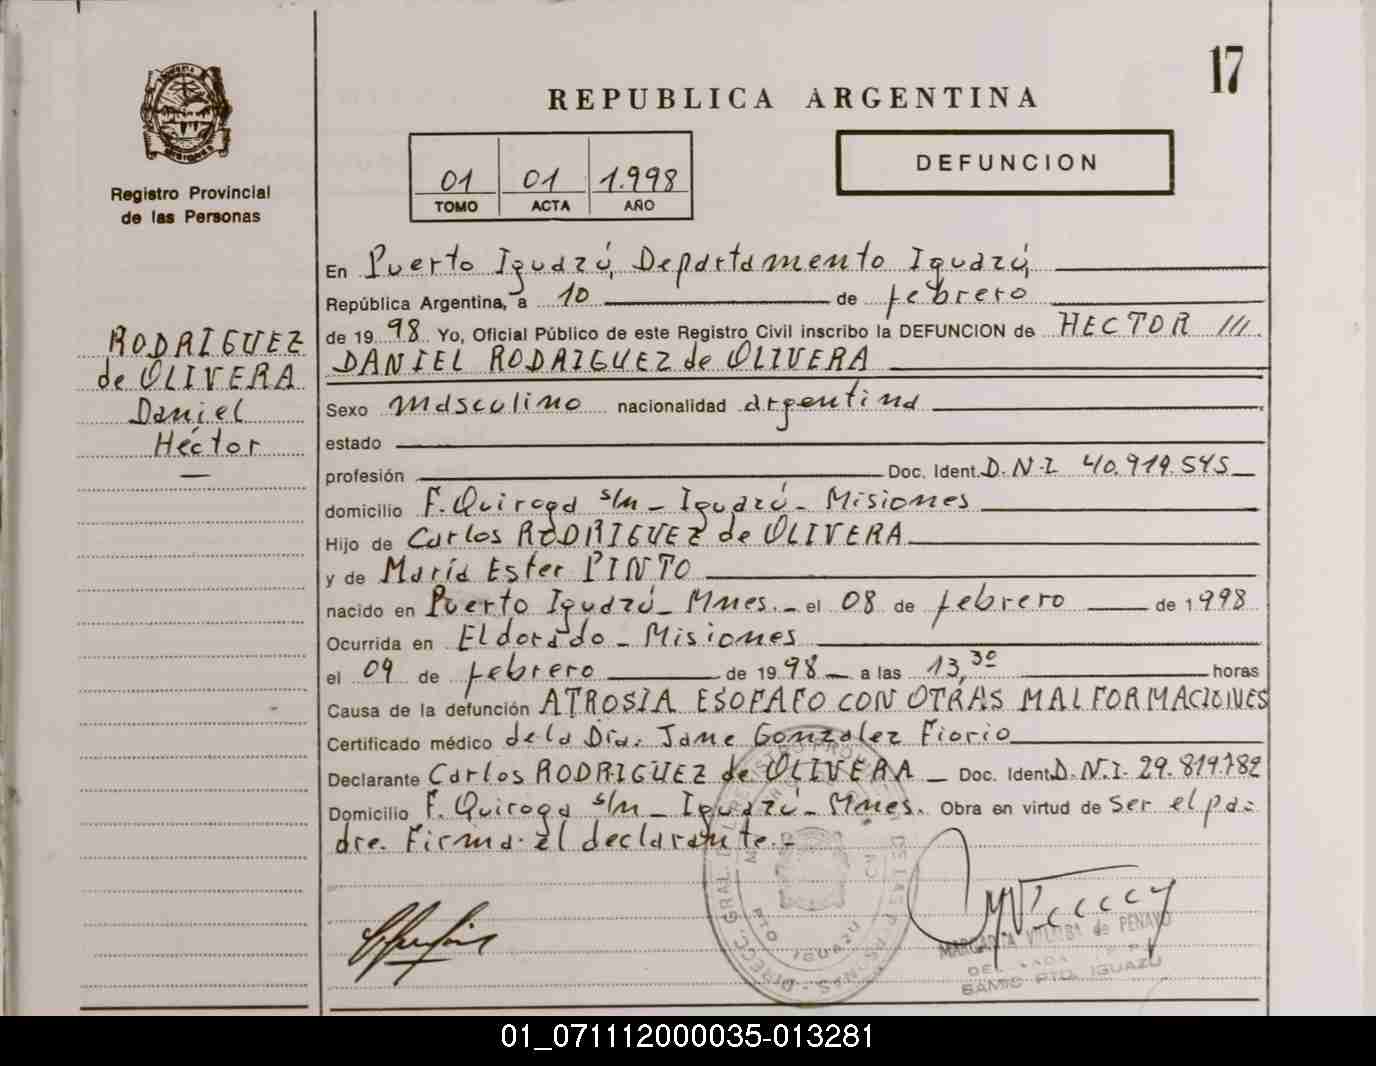 17
REPUBLICA ARGENTINA
MISIONES
Registro Provincial
de las Personas
01 01 1.998
TOMO ACTA AÑO
DEFUNCION
RODRIGUEZ
de OLIVERA
Daniel
Héctor
En Puerto Iguazú, Departamento Iguazú,
República Argentina, a 10 de febrero
de 1998 Yo, Oficial Público de este Registro Civil inscribo la DEFUNCION de HECTOR ///
DANIEL RODRIGUEZ de OLIVERA
Sexo masculino nacionalidad argentina
estado
profesión Doc. Ident. D.N.I. 40.919.545
domicilio F. Quiroga s/n - Iguazú - Misiones
Hijo de Carlos RODRIGUEZ de OLIVERA
y de María Ester PINTO
nacido en Puerto Iguazú - Mnes. - el 08 de febrero de 1998
Ocurrida en Eldorado - Misiones
el 09 de febrero de 1998 a las 13,30 horas
Causa de la defunción ATROSIA ESOFAFO CON OTRAS MALFORMACIONES
Certificado médico de la Dra. Jane Gonzalez Fiorio
Declarante Carlos RODRIGUEZ de OLIVERA - Doc. Ident. D.N.I. 29.819.782
Domicilio F. Quiroga s/n - Iguazú - Mnes. Obra en virtud de ser el pa-
dre. Firma el declarante.-
PTO IGUAZU
MARGARITA VILLALBA de PENAYO
SAMIC PTO. IGUAZU
01_071112000035-013281